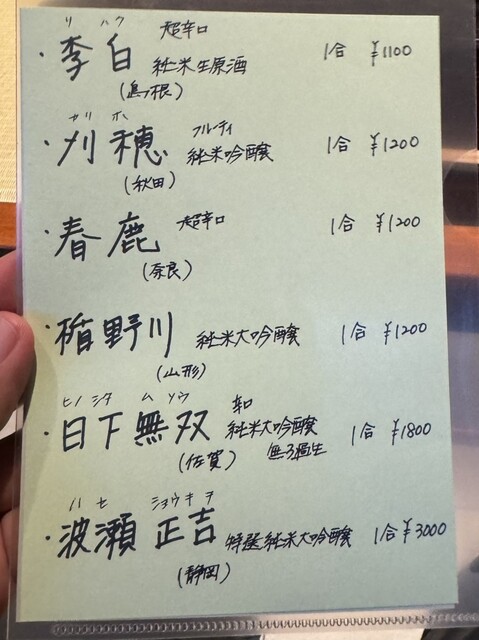 リ ハク
・李白 超辛口 純米生原酒 1合 ¥1100
(島根)
カリ ホ
・刈穂 フルーティ 純米吟醸 1合 ¥1200
(秋田)
・春鹿 超辛口 1合 ¥1200
(奈良)
・楯野川 純米大吟醸 1合 ¥1200
(山形)
ヒノシタ ム ソウ
・日下無双 辛口 純米大吟醸 無ろ過生 1合 ¥1800
(佐賀)
ハセ ショウキチ
・波瀬正吉 特選純米大吟醸 1合 ¥3000
(静岡)